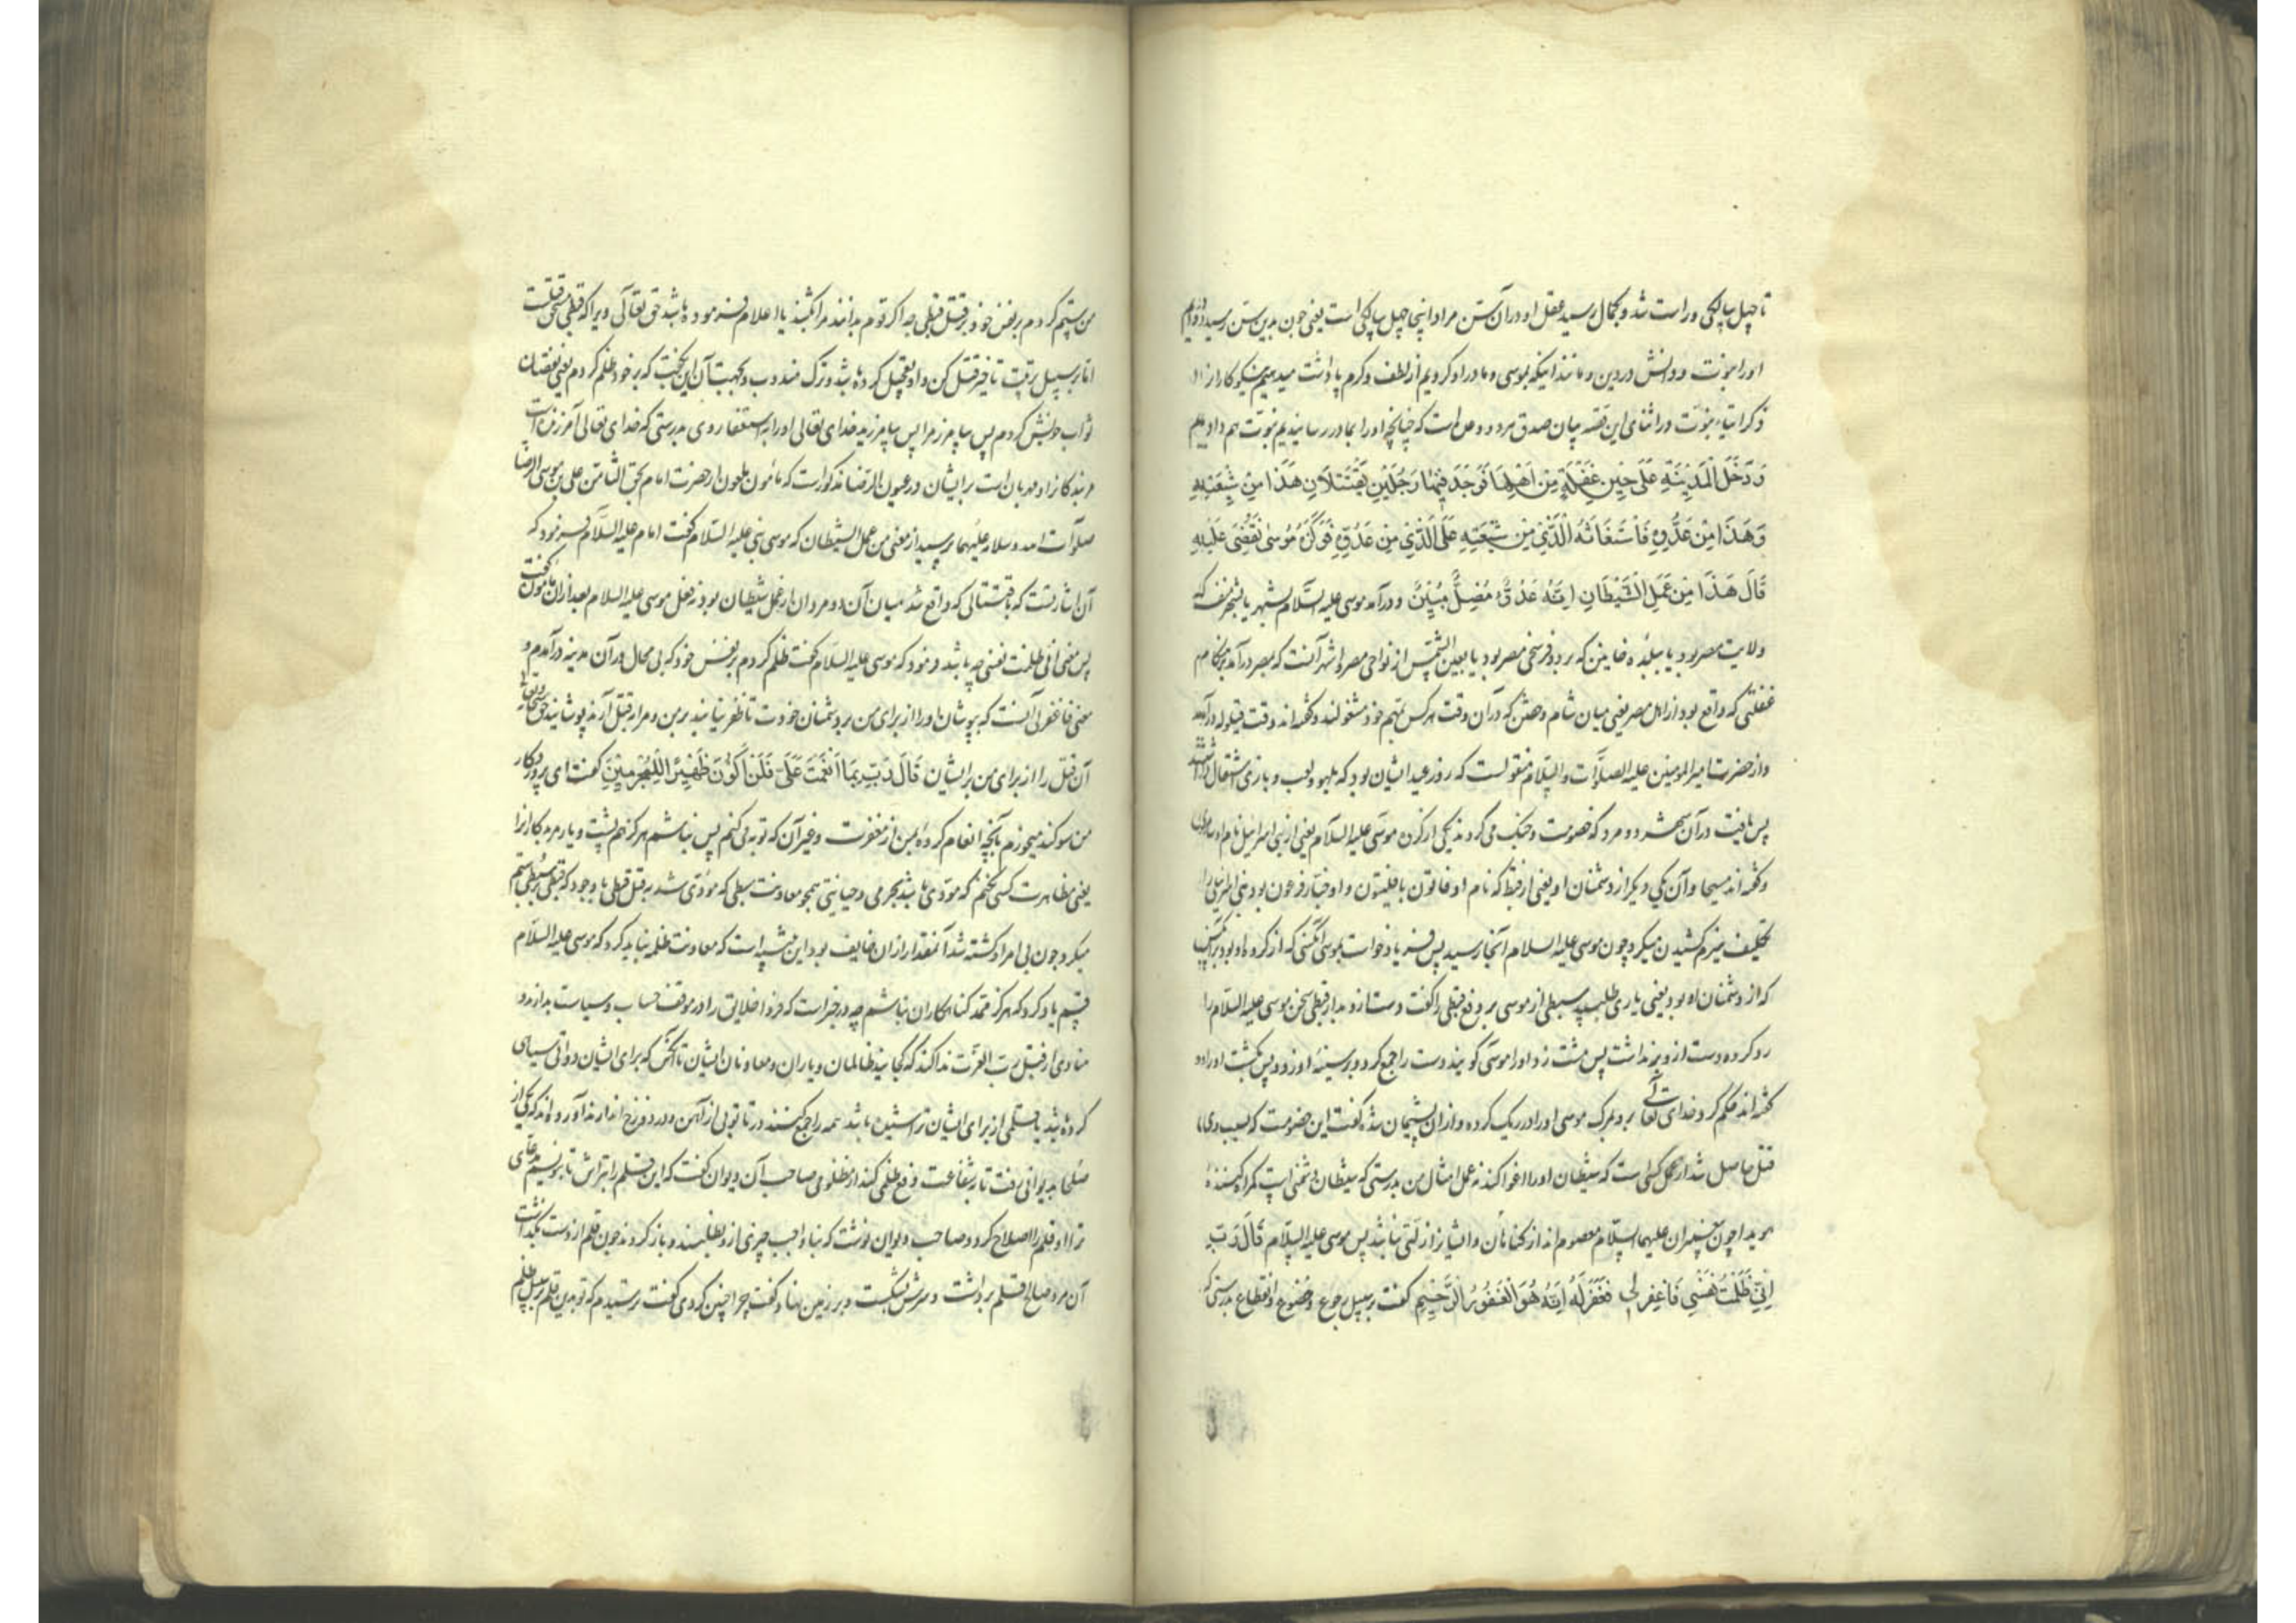 تا چهل سالگی و راست شد و بکمال رسید عقل او در آن سن مراد اینجا چهل سالگی است یعنی چون بدین سن رسید دادیم
او را نبوت و دانش در دین و مانند اینکه بموسی و مادر او کردیم از لطف و کرم پاداشت میدهیم نیکوکارانرا
ذکر ایتاء نبوت در اثنای این قصه بیان صدق هر دو وعده است که چنانچه او را بمادر رسانیدیم نبوت هم دادیم
وَدَخَلَ الْمَدِینَةِ عَلَی حِینِ غَفْلَةٍ مِنْ اَهْلِهَا فَوَجَدَ فِیْهَا رَجُلَیْنِ یَقْتَتِلَانِ هَذَا مِنْ شِیْعَتِهِ
وَهَذَا مِنْ عَدُوِّهِ فَاسْتَغَاثَهُ الَّذِیْ مِنْ شِیْعَتِهِ عَلَی الَّذِیْ مِنْ عَدُوِّهِ فَوَکَزَهُ مُوسَی فَقَضَی عَلَیْهِ
قَالَ هَذَا مِنْ عَمَلِ الشَّیْطَانِ اِنَّهُ عَدُوٌّ مُضِلٌّ مُبِیْنٌ و در آمد موسی علیه السلام بشهر یا بشهر منف که
ولایت مصر بود یا ببلده که بر دو فرسخی مصر بود یا بعین الشمس از نواحی مصر و اشهر آنست که بمصر در آمد بهنگام
غفلتی که واقع بود از اهل مصر یعنی میان شام و خفتن که در آن وقت هر کس بمهم خود مشغولند و گفته اند وقت قیلوله در آمد
و از حضرت امیر المومنین علیه الصلوات والسلام منقولست که روز عید ایشان بود که بلهو و لعب و بازی اشتغال داشتند
پس یافت در آن شهر دو مرد که خصومت و جنگ می کردند یکی از گروه موسی علیه السلام یعنی از بنی اسرائیل نام او
و گفته اند مسیحا و آن یکی دیگر از دشمنان او یعنی از قبط که نام او فاتون یا فلیثون و او خباز فرعون بود بنی اسرائیلی را
تکلیف هیزم کشیدن میکرد چون موسی علیه السلام آنجا رسید پس فریاد خواست بموسی آنکسی که از گروه او بود بر آنکس
که از دشمنان او بود یعنی یاری طلبید سبطی از موسی بر دفع قبطی را گفت دست از او بدار قبطی سخن موسی علیه السلام را
رد کرده دست از وی نداشت پس مشت زد او را موسی گویند دست را جمع کرد و بر سینه او زد و پس بکشت او را و
گفته اند حکم کرد خدای تعالی برو بمرگ موسی او را در ریگ کرده و از آن پشیمان شد گفت این خصومت که بسبب وی
قتل حاصل شد از عمل کسی است که شیطان او را اغوا کند نه عمل امثال من بدرستی که شیطان دشمنی است گمراه کننده
هویدا چون پیغمبران علیهم السلام معصوم اند از گناهان و ایشانرا زلتی نباشد پس موسی علیه السلام قَالَ رَبِّ
اِنِّی ظَلَمْتُ نَفْسِی فَاغْفِرْ لِی فَغَفَرَ لَهُ اِنَّهُ هُوَ الْغَفُوْرُ الرَّحِیْمِ گفت بر سبیل رجوع و خضوع و انقطاع بدرستی که
من ستم کردم بر نفس خود بر قتل قبطی چه اگر قوم بدانند مرا بکشند یا اعلام فرموده باشد حق تعالی ویرا که قبطی مستحق قتلست
اما بر سبیل تاخیر قتل کن و او تعجیل کرده باشد و ترک مندوب و بجهت آن این بگفت که بر خود ظلم کردم یعنی نقصان
ثواب خویش کردم پس بیامرز مرا پس بیامرزید خدای تعالی او را به استغفار وی بدرستی که خدای تعالی آمرزنده است
مر بندگانرا و مهربان است بر ایشان در عیون الرضا مذکور است که مامون ملعون از حضرت امام بحق الثامن علی بن موسی الرضا
صلوات الله و سلامه علیهما پرسید از معنی من عمل الشیطان که موسی نبی علیه السلام گفت امام علیه السلام فرمود که
آن اشارتست که باقتتالی که واقع شد میان آن دو مرد آن از عمل شیطان بود نه فعل موسی علیه السلام بعد از آن مامون گفت
پس معنی انی ظلمت نفسی چه باشد فرمود که موسی علیه السلام گفت ظلم کردم بر نفس خود که بی محال در آن مدینه درآمدم و
معنی فاغفر لی آنست که بپوشان او را از برای من بر دشمنان خود تا ظفر نیابند بر من و مرا بقتل آرند پوشانید حق سبحانه و تعالی
آن قتل را از برای من بر ایشان قَالَ رَبِّ بِمَا اَنْعَمْتَ عَلَیَّ فَلَنْ اَکُوْنَ ظَهِیْرًا لِلْمُجْرِمِیْنَ گفت ای پروردگار
من سوگند میخورم بآنچه انعام کرده بمن از مغفرت و غیر آن که توبه می کنم پس نباشم هرگز هم پشت و یار مر بدکارانرا
یعنی مظاهرت کسی نکنم که مؤدی باشد بجرمی و خیانتی همچو معاونت سبطی که مؤدی شد به قتل قبطی با وجود که قبطی بر سبطی ستم
میکرد چون بی امر او کشته شد آنمقدار از آن خایف بود این است که معاونت ظلمه نباید کرد که موسی علیه السلام
قسم یاد کرد که هرگز ممد گناهکاران نباشم چه در خبر است که فردا خلایق را در موقف حساب و سیاست بدارند و
منادی از قبل رب العزت ندا کند که کجایند ظالمان و یاران و معاونان ایشان تا آنکس که برای ایشان دواتی سیاهی
کرده باشد یا قلمی از برای ایشان تراشیده باشد همه را جمع کنند در تابوتی از آهن و در دوزخ اندازند آورده اند که یکی از
صلحا بدیوانی رفت تا بشفاعت دفع ظلمی کند از مظلومی صاحب آن دیوان گفت که این قلم را بتراش تا بنویسم مدعای
ترا او قلم را اصلاح کرد و صاحب دیوان نوشت که بناواجب چیزی ازو نطلبند و باز کردند چون قلم از دست بگذاشت
آن مرد صالح قلم برداشت و سرش شکست و بر زمین نهاد گفت چرا چنین کردی گفت ترسیدم که تو بدین قلم بر سبیل ظلم